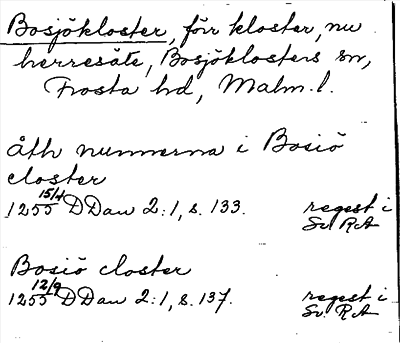 Bosjökloster, förr kloster, nu
herresäte, Bosjöklosters sn,
Frosta hd, Malm. l.
åth nunnerna i Bosiö
closter
1255 15/4 DDan 2:1, s. 133. regest i
Sv. RA
Bosiö closter
1255 12/9 DDan 2:1, s. 137. regest i
Sv. RA